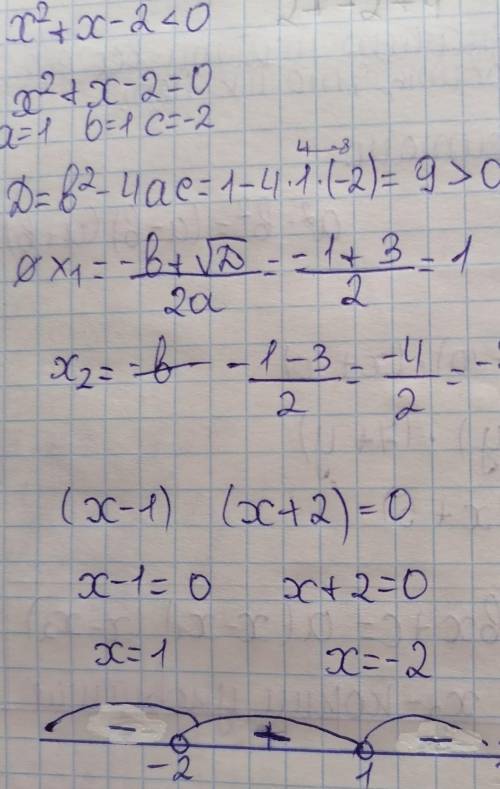 x²+x-2<0
x²+x-2=0
a=1 b=1 c=-2
D=b²-4ac=1-4·1·(-2)=9>0
x₁=(-b+√D)/2a=(-1+3)/2=1
x₂=(-1-3)/2=-4/2=-
(x-1) (x+2)=0
x-1=0 x+2=0
x=1 x=-2
- + -
-2 1